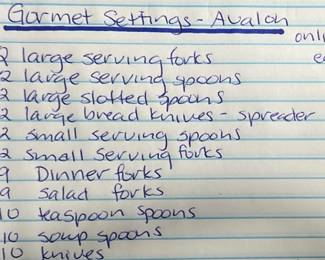 Gormet Settings - Avalon
onl
2 large serving forks
ea
2 large serving spoons
2 large slotted spoons
2 large bread knives - spreader
2 small serving spoons
2 small serving forks
9 Dinner forks
9 salad forks
10 teaspoon spoons
10 soup spoons
10 knives